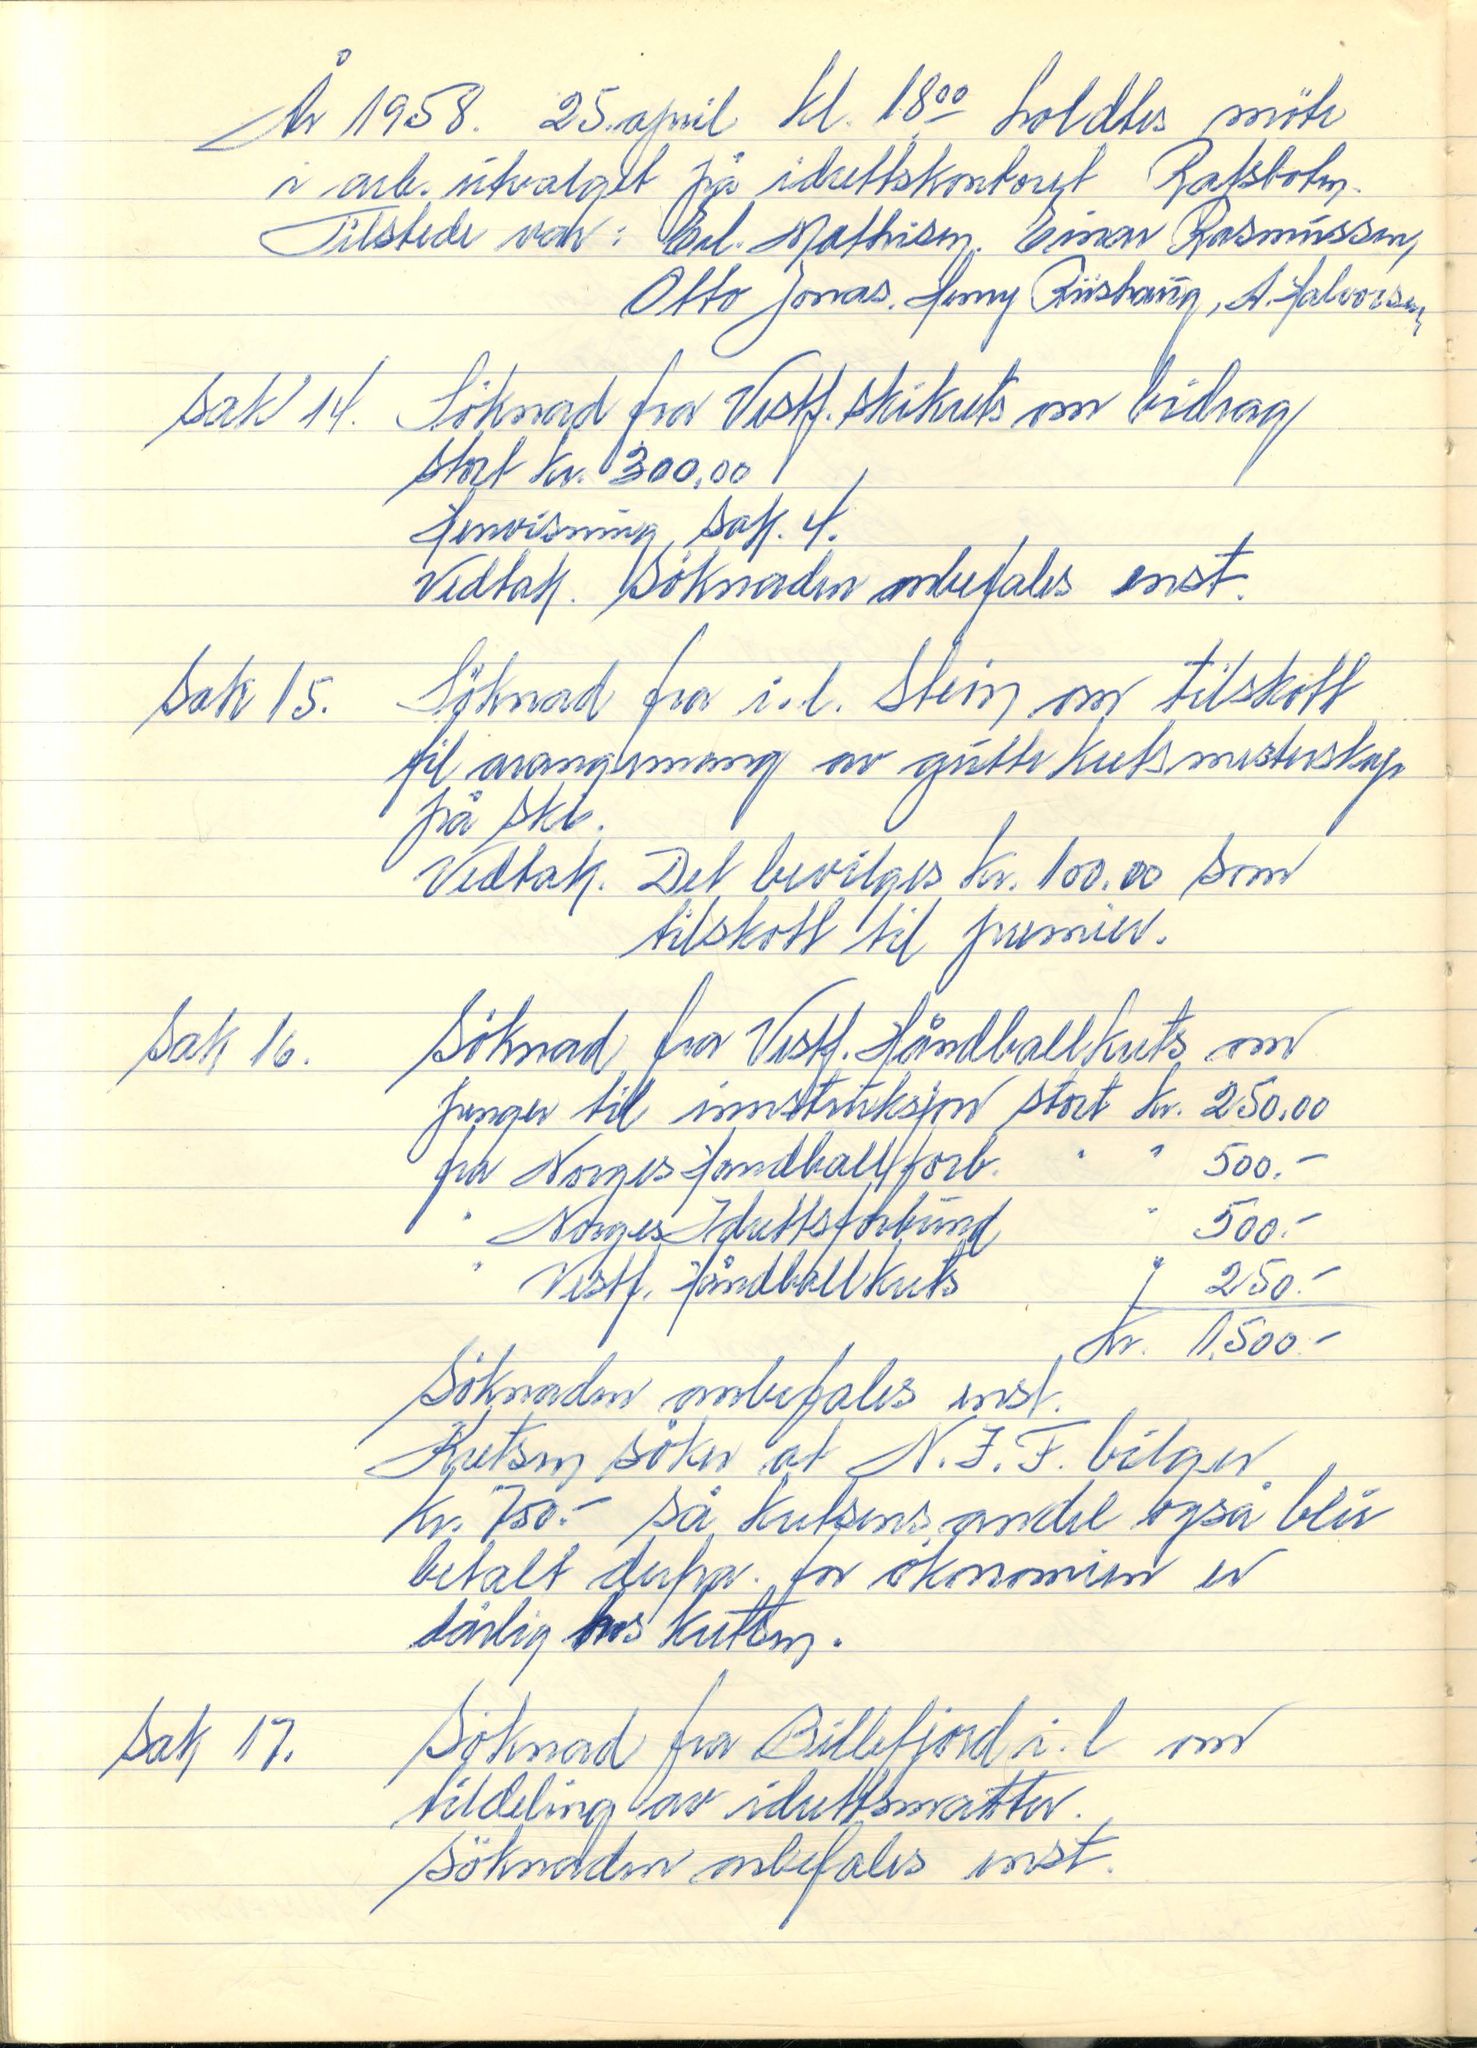 År 1958. 25. april kl. 18⁰⁰ holdtes möte
i arb. utvalget på idrettskontoret Rafsbotn.
Tilstede var: Erl. Mathisen. Einar Rasmussen,
Otto Jonas. Henry Riishaug, A. Halvorsen,
Sak 14. Söknad fra Vestf. skikrets om bidrag
stort kr. 300,00
Henvisning sak. 4.
Vedtak. Söknaden anbefales enst.
Sak 15. Söknad fra i.l. Stein om tilskott
til arangemang av gutte kretsmesterskap
på ski.
Vedtak. Det bevilges kr. 100.00 som
tilskott til premier.
Sak 16. Söknad fra Vestf. Håndballkrets om
penger til innstruksjon stort kr. 250.00
fra Norges Handballforb. " " 500.-
" Norges Idrettsforbund " 500.-
" Vestf. Håndballkrets " 250.-
Kr. 1.500.-
Söknaden anbefales enst.
Kretsen söker at N.I.F. bilger
kr. 750.- så kretsens andel også blir
betalt derfra. for ökonomien er
dårlig hos kretsen.
Sak 17. Söknad fra Billefjord i.l om
tildeling av idrettsmatter.
Söknaden anbefales enst.